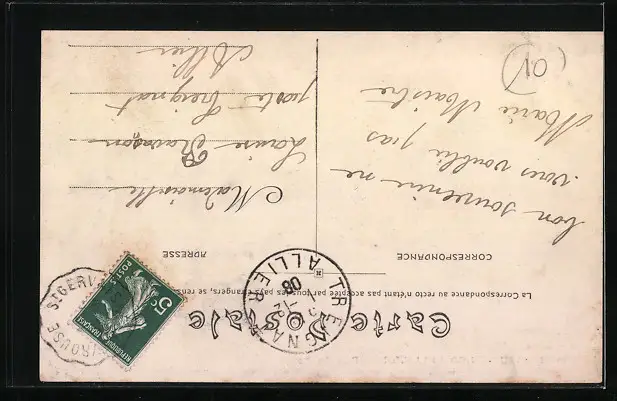 Carte Postale
La Correspondance au recto n'étant pas acceptée par tous les pays étrangers, se ren
CORRESPONDANCE
ADRESSE
bon souvenir ne
vous oublie pas
Marie Maistre
Mademoiselle
Louise
poste Treignat
Allier
TREIGNAT
ALLIER
08
5c
POSTES
REPUBLIQUE FRANÇAISE